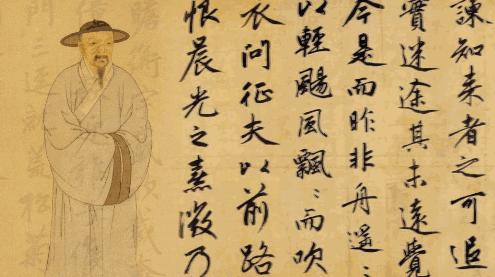 諫知来者之可追
實迷途其未遠覺
今是而昨非舟遙〻
以輕颺風飄〻而吹
衣問征夫以前路
恨晨光之熹微乃